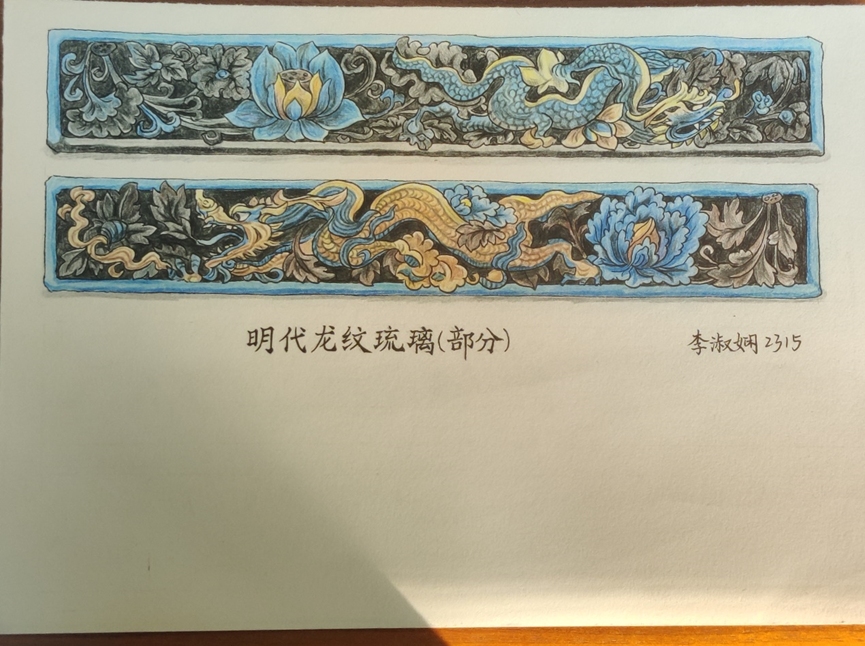 明代龙纹琉璃(部分)
李淑娴 2315